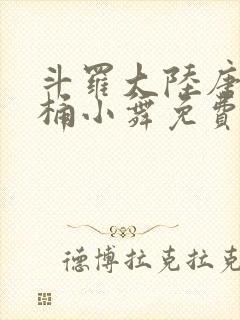 斗羅大陸唐
桶小舞免費
德博拉克拉克